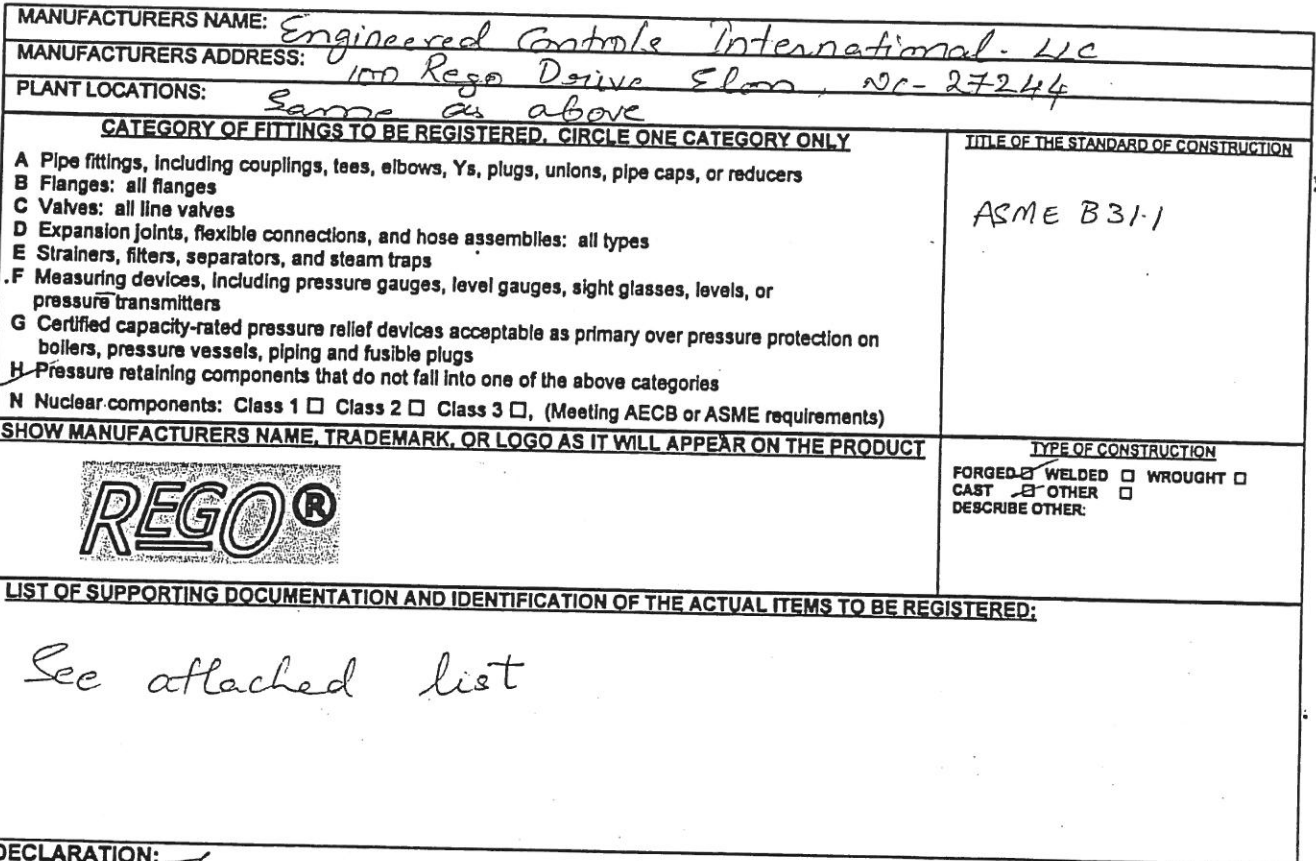 MANUFACTURERS NAME: Engineered Controls International - LLC
MANUFACTURERS ADDRESS: 100 Rego Drive Elon, NC - 27244
PLANT LOCATIONS: Same as above
CATEGORY OF FITTINGS TO BE REGISTERED. CIRCLE ONE CATEGORY ONLY
A Pipe fittings, including couplings, tees, elbows, Ys, plugs, unions, pipe caps, or reducers
B Flanges: all flanges
C Valves: all line valves
D Expansion joints, flexible connections, and hose assemblies: all types
E Strainers, filters, separators, and steam traps
.F Measuring devices, including pressure gauges, level gauges, sight glasses, levels, or
pressure transmitters
G Certified capacity-rated pressure relief devices acceptable as primary over pressure protection on
boilers, pressure vessels, piping and fusible plugs
H Pressure retaining components that do not fall into one of the above categories
N Nuclear components: Class 1 ☐ Class 2 ☐ Class 3 ☐, (Meeting AECB or ASME requirements)
TITLE OF THE STANDARD OF CONSTRUCTION
ASME B31.1
SHOW MANUFACTURERS NAME, TRADEMARK, OR LOGO AS IT WILL APPEAR ON THE PRODUCT
REGO®
TYPE OF CONSTRUCTION
FORGED ☑ WELDED ☐ WROUGHT ☐
CAST ☑ OTHER ☐
DESCRIBE OTHER:
LIST OF SUPPORTING DOCUMENTATION AND IDENTIFICATION OF THE ACTUAL ITEMS TO BE REGISTERED:
See attached list
DECLARATION: